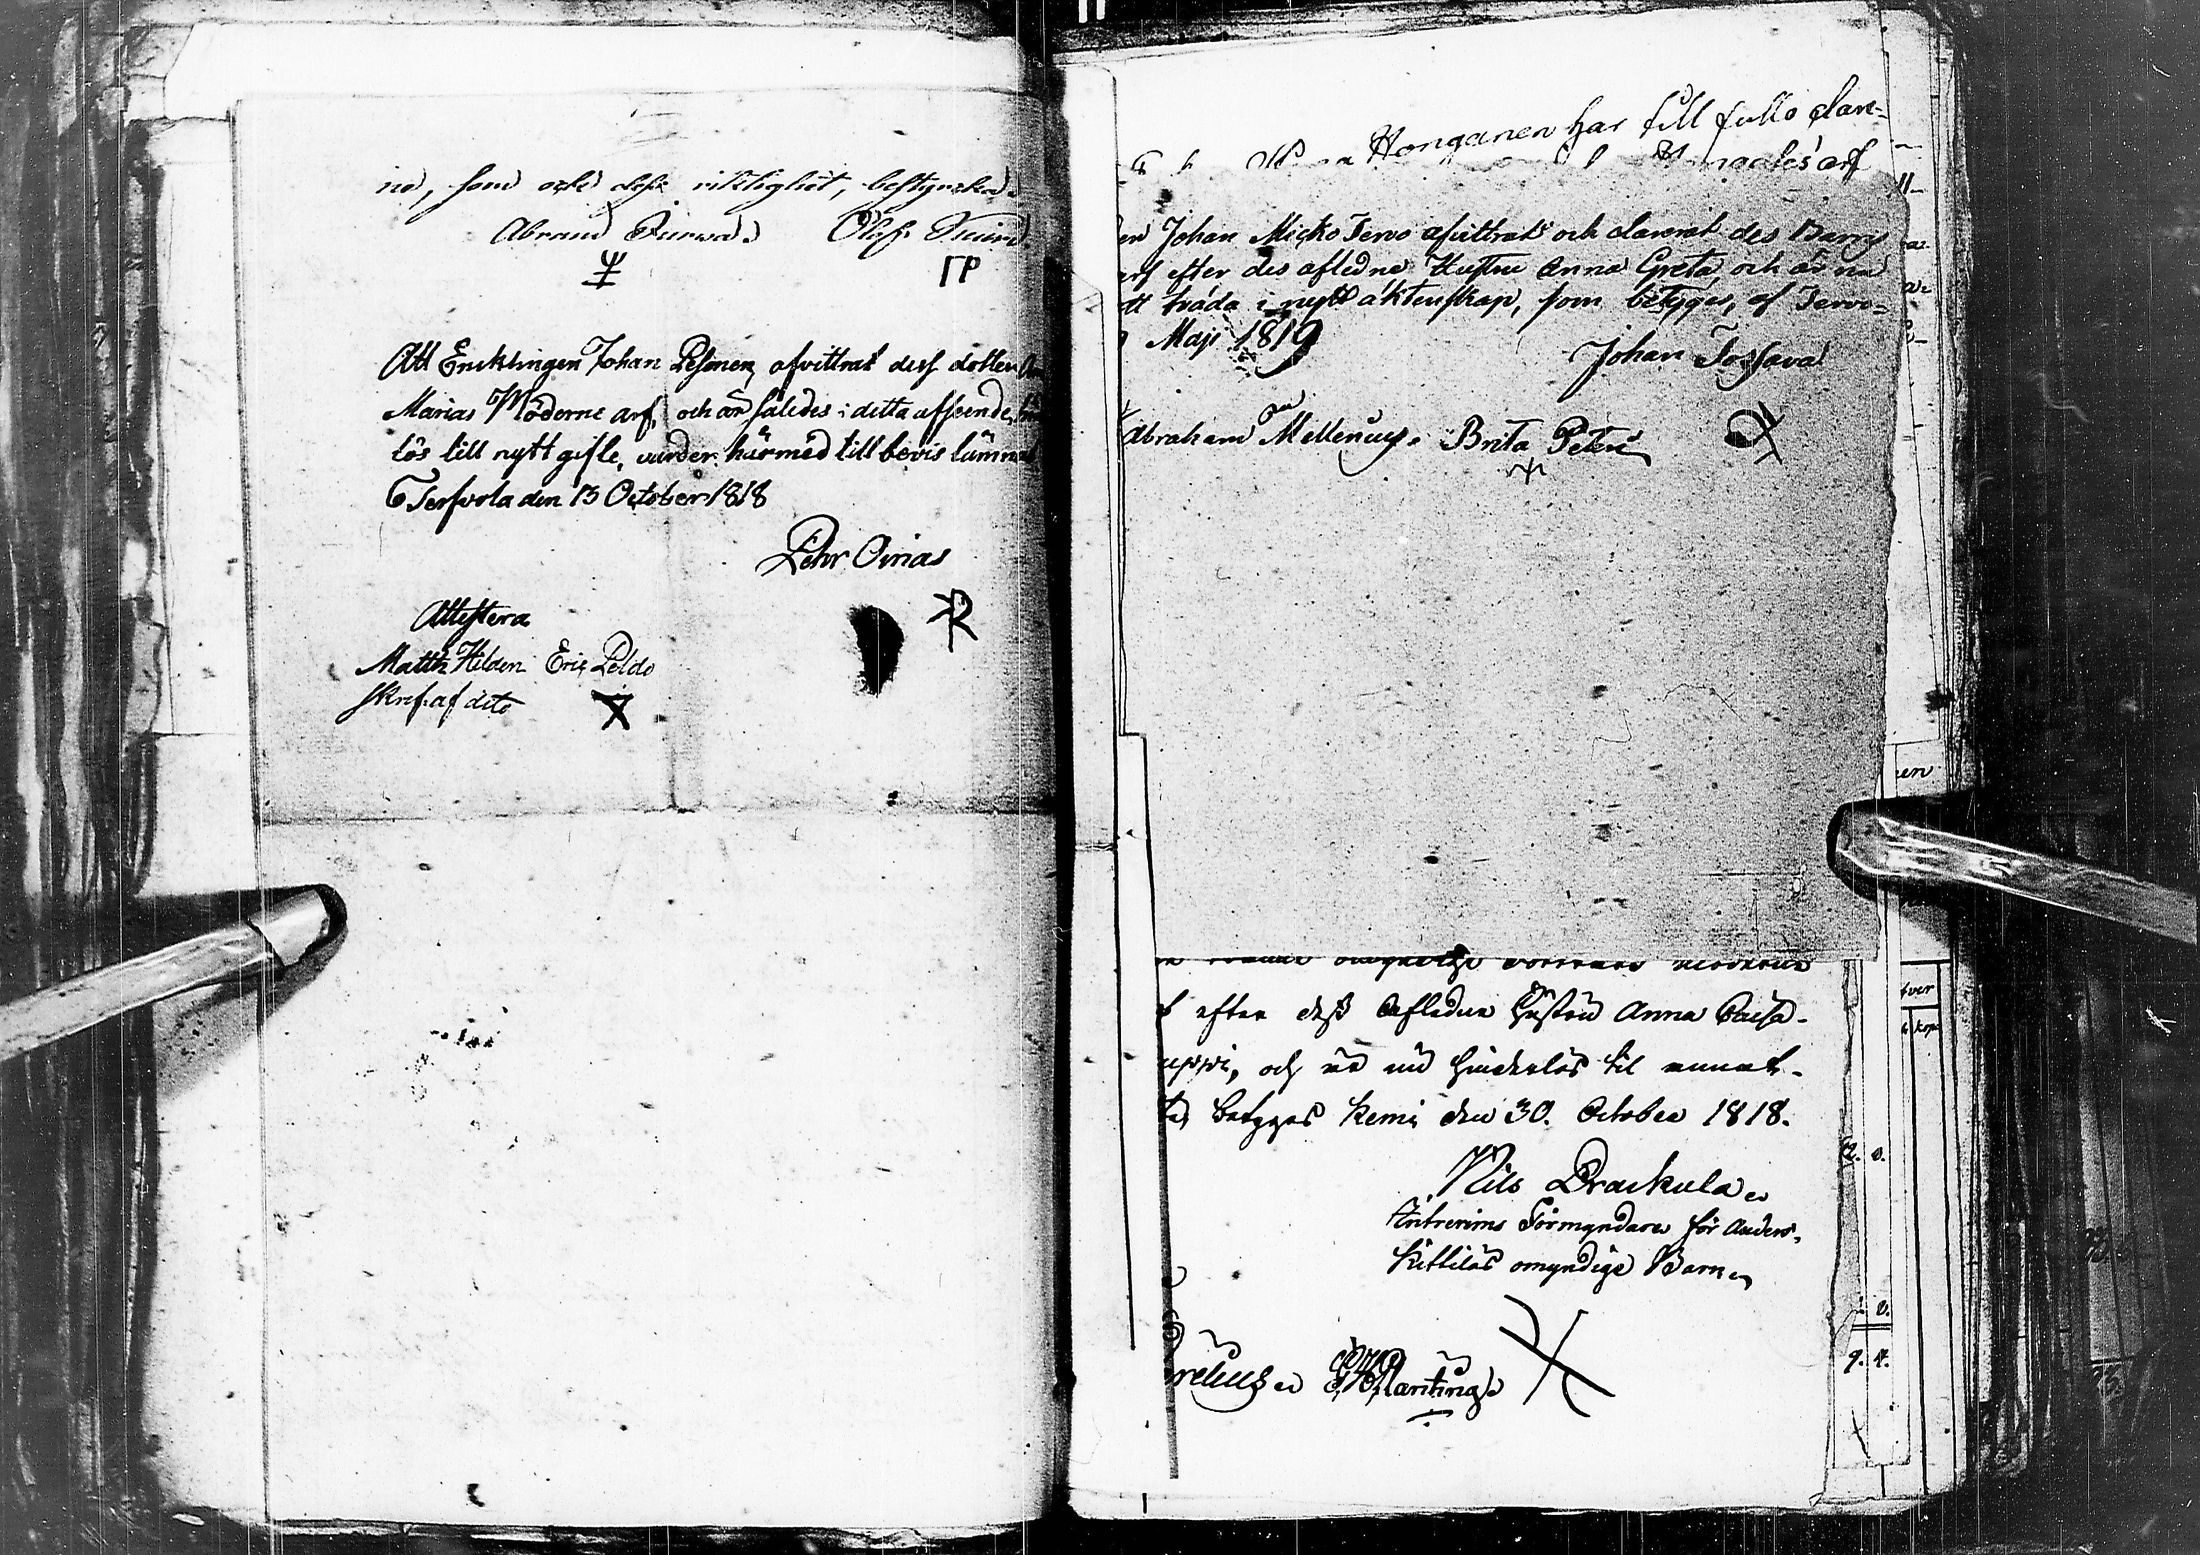 ne, som ock dess riktighet, bestyrka.
Abram Turwa. Olof
Att Encklingen Johan Pesonen, afvittrat dess dotter
Marias Möderne arf, och är således i detta afseende,
lös till nytt gifte, varder härmed till bevis lämnat
Terfvola den 13 October 1818
Pehr Oinas
R
Attestera
Matth Hilden Eric Peldo
skrif. af dito
Honganen har till fullo clare-
arf
Johan Micko Tervo afvittrat och clarerat des Barns
arf efter des afledne Hustru Anna Greta och är nu
tt träda i nytt äktenskap, som betygas, af Tervo-
Maji 1819
Johan Tossava
Abraham Mellenius. Brita Peteri
efter dess Afledne Hustru Anna Caisa-
och är nu hinderlös til annat-
betygas Kemi den 30. October 1818.
Nils Drackula
Interims Förmyndare för Anders
Kittiläs omyndige Barn
relius Planting